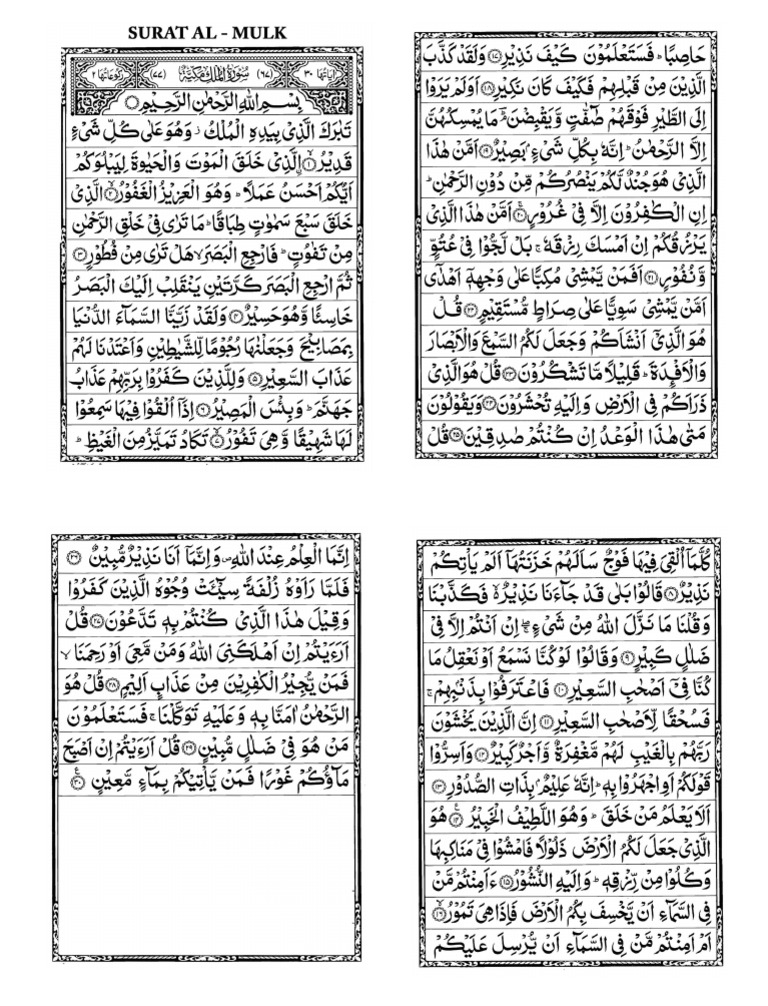 SURAT AL - MULK
اٰيَاتُهَا ٣٠ (٦٧) سُوْرَةُ الْمُلْكِ مَكِّيَّةٌ (٧٧) رُكُوْعَاتُهَا ٢
بِسْمِ اللهِ الرَّحْمٰنِ الرَّحِيْمِ
تَبٰرَكَ الَّذِيْ بِيَدِهِ الْمُلْكُ ز وَهُوَ عَلٰى كُلِّ شَيْءٍ
قَدِيْرُ ۙ﴿١﴾ اۨلَّذِيْ خَلَقَ الْمَوْتَ وَالْحَيٰوةَ لِيَبْلُوَكُمْ
اَيُّكُمْ اَحْسَنُ عَمَلًا ؕ وَهُوَ الْعَزِيْزُ الْغَفُوْرُ ۙ﴿٢﴾ الَّذِيْ
خَلَقَ سَبْعَ سَمٰوٰتٍ طِبَاقًا ؕ مَا تَرٰى فِيْ خَلْقِ الرَّحْمٰنِ
مِنْ تَفٰوُتٍ ؕ فَارْجِعِ الْبَصَرَ ۙ هَلْ تَرٰى مِنْ فُطُوْرٍ ﴿٣﴾
ثُمَّ ارْجِعِ الْبَصَرَ كَرَّتَيْنِ يَنْقَلِبْ اِلَيْكَ الْبَصَرُ
خَاسِئًا وَّهُوَ حَسِيْرٌ ﴿٤﴾ وَلَقَدْ زَيَّنَّا السَّمَآءَ الدُّنْيَا
بِمَصَابِيْحَ وَجَعَلْنٰهَا رُجُوْمًا لِّلشَّيٰطِيْنِ وَاَعْتَدْنَا لَهُمْ
عَذَابَ السَّعِيْرِ ﴿٥﴾ وَلِلَّذِيْنَ كَفَرُوْا بِرَبِّهِمْ عَذَابُ
جَهَنَّمَ ؕ وَبِئْسَ الْمَصِيْرُ ﴿٦﴾ اِذَآ اُلْقُوْا فِيْهَا سَمِعُوْا
لَهَا شَهِيْقًا وَّهِيَ تَفُوْرُ ۙ﴿٧﴾ تَكَادُ تَمَيَّزُ مِنَ الْغَيْظِ ؕ
كُلَّمَآ اُلْقِيَ فِيْهَا فَوْجٌ سَاَلَهُمْ خَزَنَتُهَآ اَلَمْ يَاْتِكُمْ
نَذِيْرٌ ﴿٨﴾ قَالُوْا بَلٰى قَدْ جَآءَنَا نَذِيْرٌ ۙ۬ فَكَذَّبْنَا
وَقُلْنَا مَا نَزَّلَ اللهُ مِنْ شَيْءٍ ۚۖ اِنْ اَنْتُمْ اِلَّا فِيْ
ضَلٰلٍ كَبِيْرٍ ﴿٩﴾ وَقَالُوْا لَوْ كُنَّا نَسْمَعُ اَوْ نَعْقِلُ مَا
كُنَّا فِيْٓ اَصْحٰبِ السَّعِيْرِ ﴿١٠﴾ فَاعْتَرَفُوْا بِذَنْۢبِهِمْ ۚ
فَسُحْقًا لِّاَصْحٰبِ السَّعِيْرِ ﴿١١﴾ اِنَّ الَّذِيْنَ يَخْشَوْنَ
رَبَّهُمْ بِالْغَيْبِ لَهُمْ مَّغْفِرَةٌ وَّاَجْرٌ كَبِيْرٌ ﴿١٢﴾ وَاَسِرُّوْا
قَوْلَكُمْ اَوِ اجْهَرُوْا بِهٖ ؕ اِنَّهٗ عَلِيْمٌۢ بِذَاتِ الصُّدُوْرِ ﴿١٣﴾
اَلَا يَعْلَمُ مَنْ خَلَقَ ؕ وَهُوَ اللَّطِيْفُ الْخَبِيْرُ ﴿١٤﴾ هُوَ
الَّذِيْ جَعَلَ لَكُمُ الْاَرْضَ ذَلُوْلًا فَامْشُوْا فِيْ مَنَاكِبِهَا
وَكُلُوْا مِنْ رِّزْقِهٖ ؕ وَاِلَيْهِ النُّشُوْرُ ﴿١٥﴾ ءَاَمِنْتُمْ مَّنْ
فِي السَّمَآءِ اَنْ يَّخْسِفَ بِكُمُ الْاَرْضَ فَاِذَا هِيَ تَمُوْرُ ۙ﴿١٦﴾
اَمْ اَمِنْتُمْ مَّنْ فِي السَّمَآءِ اَنْ يُّرْسِلَ عَلَيْكُمْ
حَاصِبًا ؕ فَسَتَعْلَمُوْنَ كَيْفَ نَذِيْرِ ﴿١٧﴾ وَلَقَدْ كَذَّبَ
الَّذِيْنَ مِنْ قَبْلِهِمْ فَكَيْفَ كَانَ نَكِيْرِ ﴿١٨﴾ اَوَلَمْ يَرَوْا
اِلَى الطَّيْرِ فَوْقَهُمْ صٰٓفّٰتٍ وَّيَقْبِضْنَ ؔۘ مَا يُمْسِكُهُنَّ
اِلَّا الرَّحْمٰنُ ؕ اِنَّهٗ بِكُلِّ شَيْءٍۢ بَصِيْرٌ ﴿١٩﴾ اَمَّنْ هٰذَا
الَّذِيْ هُوَ جُنْدٌ لَّكُمْ يَنْصُرُكُمْ مِّنْ دُوْنِ الرَّحْمٰنِ ؕ
اِنِ الْكٰفِرُوْنَ اِلَّا فِيْ غُرُوْرٍ ۚ﴿٢٠﴾ اَمَّنْ هٰذَا الَّذِيْ
يَرْزُقُكُمْ اِنْ اَمْسَكَ رِزْقَهٗ ۚ بَلْ لَّجُّوْا فِيْ عُتُوٍّ
وَّنُفُوْرٍ ﴿٢١﴾ اَفَمَنْ يَّمْشِيْ مُكِبًّا عَلٰى وَجْهِهٖٓ اَهْدٰٓى
اَمَّنْ يَّمْشِيْ سَوِيًّا عَلٰى صِرَاطٍ مُّسْتَقِيْمٍ ﴿٢٢﴾ قُلْ
هُوَ الَّذِيْٓ اَنْشَاَكُمْ وَجَعَلَ لَكُمُ السَّمْعَ وَالْاَبْصَارَ
وَالْاَفْـِٕدَةَ ؕ قَلِيْلًا مَّا تَشْكُرُوْنَ ﴿٢٣﴾ قُلْ هُوَ الَّذِيْ
ذَرَاَكُمْ فِي الْاَرْضِ وَاِلَيْهِ تُحْشَرُوْنَ ﴿٢٤﴾ وَيَقُوْلُوْنَ
مَتٰى هٰذَا الْوَعْدُ اِنْ كُنْتُمْ صٰدِقِيْنَ ﴿٢٥﴾ قُلْ
اِنَّمَا الْعِلْمُ عِنْدَ اللهِ ص وَاِنَّمَآ اَنَا نَذِيْرٌ مُّبِيْنٌ ﴿٢٦﴾
فَلَمَّا رَاَوْهُ زُلْفَةً سِيْٓـَٔتْ وُجُوْهُ الَّذِيْنَ كَفَرُوْا
وَقِيْلَ هٰذَا الَّذِيْ كُنْتُمْ بِهٖ تَدَّعُوْنَ ﴿٢٧﴾ قُلْ
اَرَءَيْتُمْ اِنْ اَهْلَكَنِيَ اللهُ وَمَنْ مَّعِيَ اَوْ رَحِمَنَا ۙ
فَمَنْ يُّجِيْرُ الْكٰفِرِيْنَ مِنْ عَذَابٍ اَلِيْمٍ ﴿٢٨﴾ قُلْ هُوَ
الرَّحْمٰنُ اٰمَنَّا بِهٖ وَعَلَيْهِ تَوَكَّلْنَا ۚ فَسَتَعْلَمُوْنَ
مَنْ هُوَ فِيْ ضَلٰلٍ مُّبِيْنٍ ﴿٢٩﴾ قُلْ اَرَءَيْتُمْ اِنْ اَصْبَحَ
مَآؤُكُمْ غَوْرًا فَمَنْ يَّاْتِيْكُمْ بِمَآءٍ مَّعِيْنٍ ﴿٣٠﴾